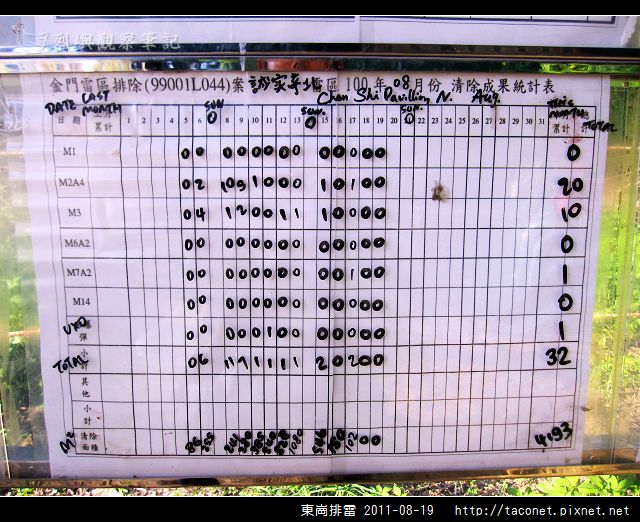 利與觀察筆記
金門雷區排除(99001L044)案 誠家莊北 雷區 100 年 08 月份 清除成果統計表
DATE LAST MONTH SUN SUN. Chen Shi Pavillion N. SUN. Aug. THIS MONTH TOTAL
日期 累計 1 2 3 4 5 6 7 8 9 10 11 12 13 14 15 16 17 18 19 20 21 22 23 24 25 26 27 28 29 30 31 累計
M1 0 0 0 0 0 0 0 0 0 0 0 0 0 0
M2A4 0 2 1 0 1 0 0 0 1 0 1 0 0 20
M3 0 4 1 2 0 0 1 1 1 0 0 0 0 10
M6A2 0 0 0 0 0 0 0 0 0 0 0 0 0 0
M7A2 0 0 0 0 0 0 0 0 0 0 1 0 0 1
M14 0 0 0 0 0 0 0 0 0 0 0 0 0 0
UXO 彈 0 0 0 0 0 1 0 0 0 0 0 0 0 1
TOTAL 小計 0 6 11 1 1 1 1 2 0 2 0 0 32
其他
小計
M2 清除面積 0 0 4193
東崗排雷 2011-08-19 http://taconet.pixnet.net